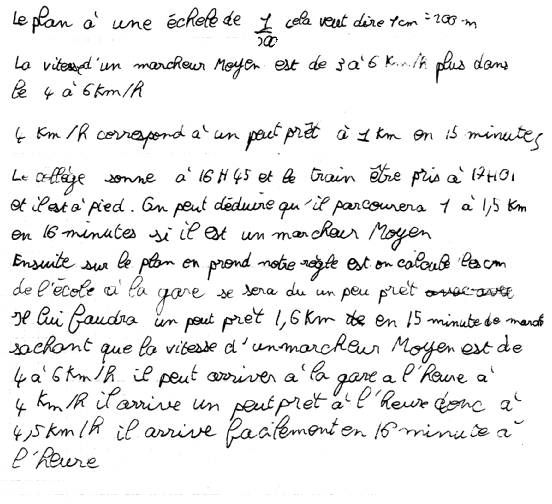 Le plan à une échele de 1/200 cela veut dire 1cm = 200 m
La vitesse d'un marcheur Moyen est de 3 à 6 Km/h plus dans
le 4 à 6km/h
4 Km/h correspond à un peut prêt à 1 Km en 15 minutes
Le collège sonne à 16H45 et le train être pris à 17H01
et il est à pied. On peut déduire qu'il parcourera 1 à 1,5 Km
en 16 minutes si il est un marcheur Moyen
Ensuite sur le plan on prend notre règle est on calcule les cm
de l'école à la gare se sera du un peu prêt
Il lui faudra un peut prêt 1,6 Km en 15 minute de march
sachant que la vitesse d'un marcheur Moyen est de
4 à 6 Km/h il peut arriver à la gare a l'heure à
4 Km/h il arrive un peut prêt à l'heure donc à
4,5 km/h il arrive facilement en 16 minute à
l'heure